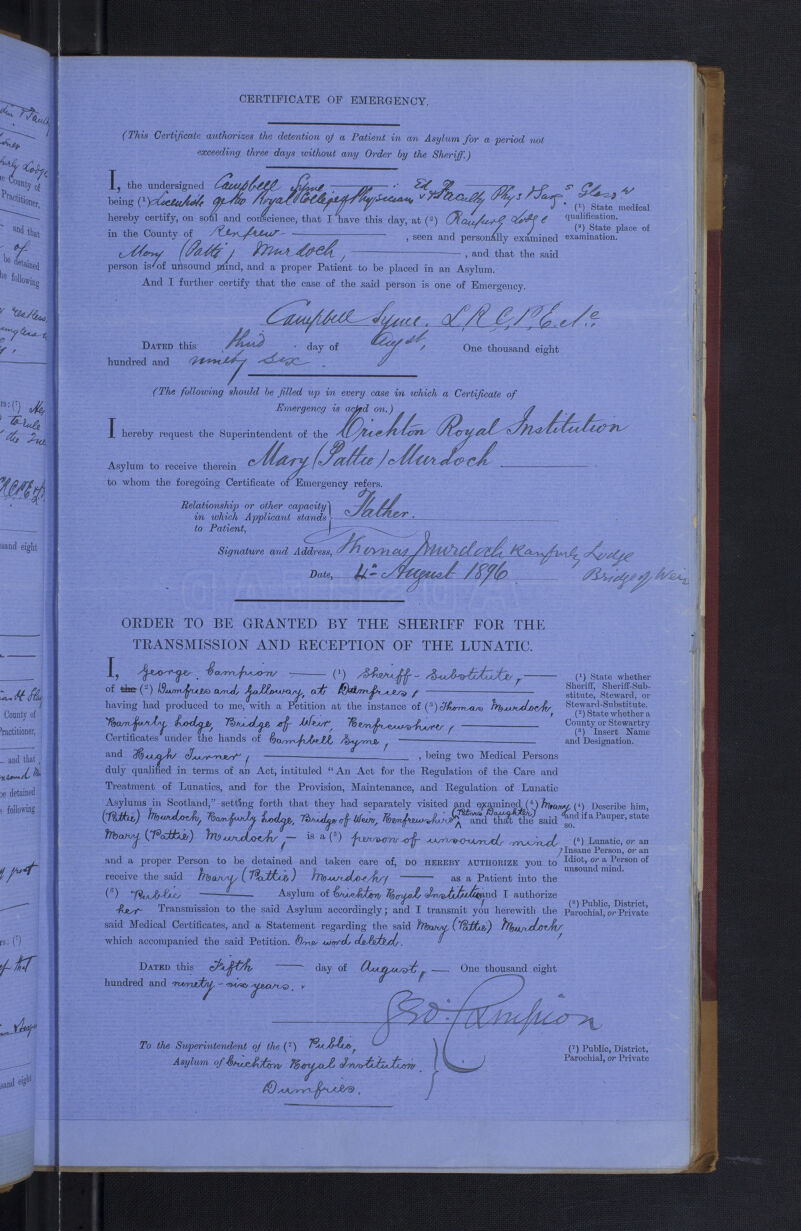 CERTIFICATE OF EMERGENCY.
(This Certificate authorizes the detention of a Patient in an Asylum for a period not
exceeding three days without any Order by the Sheriff.)
I, the undersigned Campbell Syme
being (1) Licentiate of the Royal College of Physicians Ed & Faculty Phys & Surgs Glasgw
hereby certify, on soul and conscience, that I have this day, at (2) Ranfurly Lodge
in the County of Renfrew , seen and personally examined
Mary (Pattie) Murdoch, , and that the said
person is of unsound mind, and a proper Patient to be placed in an Asylum.
And I further certify that the case of the said person is one of Emergency.
(1) State medical
qualification.
(2) State place of
examination.
Campbell Syme. L.R.C.P.E. &c.
DATED this third day of Augst, One thousand eight
hundred and ninety six.
(The following should be filled up in every case in which a Certificate of
Emergency is acted on.)
I hereby request the Superintendent of the Crichton Royal Institution
Asylum to receive therein Mary (Pattie) Murdoch
to whom the foregoing Certificate of Emergency refers.
Relationship or other capacity
in which Applicant stands
to Patient,
Father.
Signature and Address, Thomas Murdoch Ranfurly Lodge
Bridge of Weir
Date, 4th August 1896
ORDER TO BE GRANTED BY THE SHERIFF FOR THE
TRANSMISSION AND RECEPTION OF THE LUNATIC.
I, George Campion (1) Sheriff-Substitute,
of the (2) Dumfries and Galloway, at Dumfries,
having had produced to me, with a Petition at the instance of (3) Thomas Murdoch,
Ranfurly Lodge, Bridge of Weir, Renfrewshire,
Certificates under the hands of Campbell Syme,
and Hugh Turner, , being two Medical Persons
duly qualified in terms of an Act, intituled "An Act for the Regulation of the Care and
Treatment of Lunatics, and for the Provision, Maintenance, and Regulation of Lunatic
Asylums in Scotland," setting forth that they had separately visited and examined (4) Mary
(Pattie) Murdoch, Ranfurly Lodge, Bridge of Weir, Renfrewshire (Petrs Daughter) and that the said
Mary (Pattie) Murdoch, is a (5) person of unsound mind,
and a proper Person to be detained and taken care of, DO HEREBY AUTHORIZE you to
receive the said Mary (Pattie) Murdoch, as a Patient into the
(6) Public Asylum of Crichton Royal Institution and I authorize
her Transmission to the said Asylum accordingly; and I transmit you herewith the
said Medical Certificates, and a Statement regarding the said Mary (Pattie) Murdoch,
which accompanied the said Petition. One word deleted.
(1) State whether
Sheriff, Sheriff-Sub-
stitute, Steward, or
Steward-Substitute.
(2) State whether a
County or Stewartry
(3) Insert Name
and Designation.
(4) Describe him,
and if a Pauper, state
so.
(5) Lunatic, or an
Insane Person, or an
Idiot, or a Person of
unsound mind.
(6) Public, District,
Parochial, or Private
DATED this Fifth day of August, One thousand eight
hundred and ninety-six years.
Geo. Campion
To the Superintendent of the (7) Public,
Asylum of Crichton Royal Institution.
Dumfries.
(7) Public, District,
Parochial, or Private